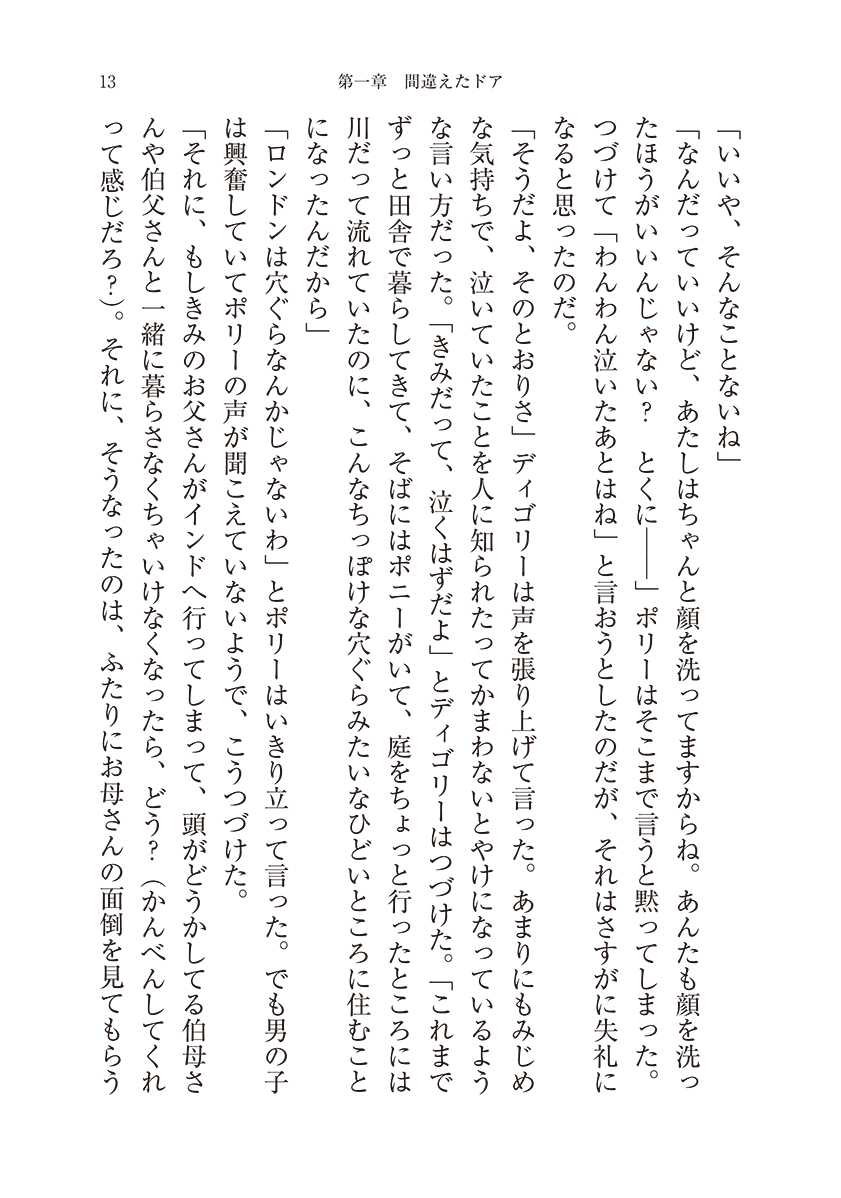 13
第一章　間違えたドア
「いいや、そんなことないね」
「なんだっていいけど、あたしはちゃんと顔を洗ってますからね。あんたも顔を洗っ
たほうがいいんじゃない？　とくに――」ポリーはそこまで言うと黙ってしまった。
つづけて「わんわん泣いたあとはね」と言おうとしたのだが、それはさすがに失礼に
なると思ったのだ。
「そうだよ、そのとおりさ」ディゴリーは声を張り上げて言った。あまりにもみじめ
な気持ちで、泣いていたことを人に知られたってかまわないとやけになっているよう
な言い方だった。「きみだって、泣くはずだよ」とディゴリーはつづけた。「これまで
ずっと田舎で暮らしてきて、そばにはポニーがいて、庭をちょっと行ったところには
川だって流れていたのに、こんなちっぽけな穴ぐらみたいなひどいところに住むこと
になったんだから」
「ロンドンは穴ぐらなんかじゃないわ」とポリーはいきり立って言った。でも男の子
は興奮していてポリーの声が聞こえていないようで、こうつづけた。
「それに、もしきみのお父さんがインドへ行ってしまって、頭がどうかしてる伯母さ
んや伯父さんと一緒に暮らさなくちゃいけなくなったら、どう？（かんべんしてくれ
って感じだろ？）。それに、そうなったのは、ふたりにお母さんの面倒を見てもらう